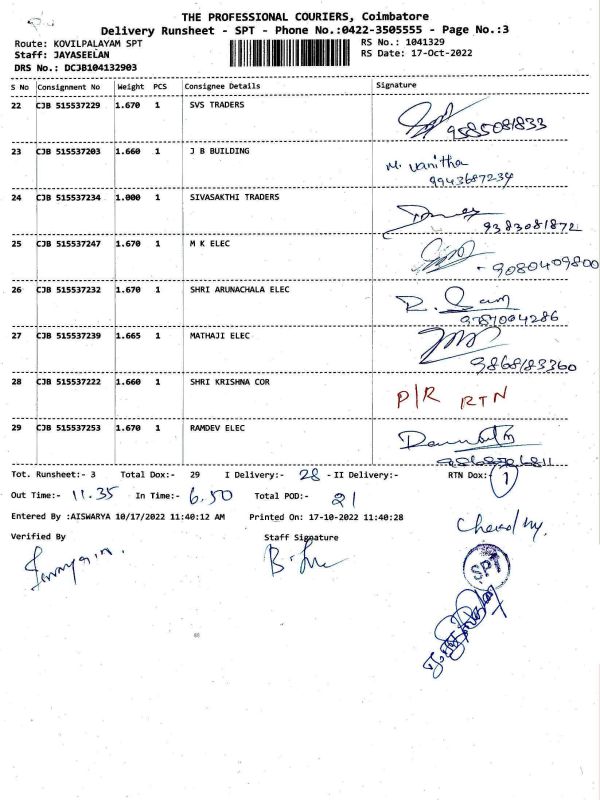 THE PROFESSIONAL COURIERS, Coimbatore
Delivery Runsheet - SPT - Phone No.:0422-3505555 - Page No.:3
Route: KOVILPALAYAM SPT RS No.: 1041329
Staff: JAYASEELAN RS Date: 17-Oct-2022
DRS No.: DCJB104132903
S No Consignment No Weight PCS Consignee Details Signature
22 CJB 515537229 1.670 1 SVS TRADERS
9585081833
23 CJB 515537203 1.660 1 J B BUILDING
M. Vanitha
9943687234
24 CJB 515537234 1.000 1 SIVASAKTHI TRADERS
9383081872
25 CJB 515537247 1.670 1 M K ELEC
- 9080409800
26 CJB 515537232 1.670 1 SHRI ARUNACHALA ELEC
27 CJB 515537239 1.665 1 MATHAJI ELEC
9868183360
28 CJB 515537222 1.660 1 SHRI KRISHNA COR
P/R RTN
29 CJB 515537253 1.670 1 RAMDEV ELEC
Tot. Runsheet:- 3 Total Dox:- 29 I Delivery:- 28 - II Delivery:- RTN Dox:- 1
Out Time:- 11.35 In Time:- 6.50 Total POD:- 21
Entered By :AISWARYA 10/17/2022 11:40:12 AM Printed On: 17-10-2022 11:40:28
Verified By Staff Signature
SPT